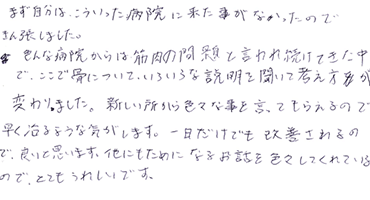 まず自分は、こういった病院に来た事がなかったので
きん張しました。
色んな病院からは筋肉の問題と言われ続けてきた中
で、ここで骨について、いろいろな説明を聞いて考え方が
変わりました。新しい所から色々な事を言ってもらえるので
早く治るような気がします。一日だけでも改善されるの
で、良いと思います。他にもためになるお話を色々してくれている
ので、とてもうれしいです。